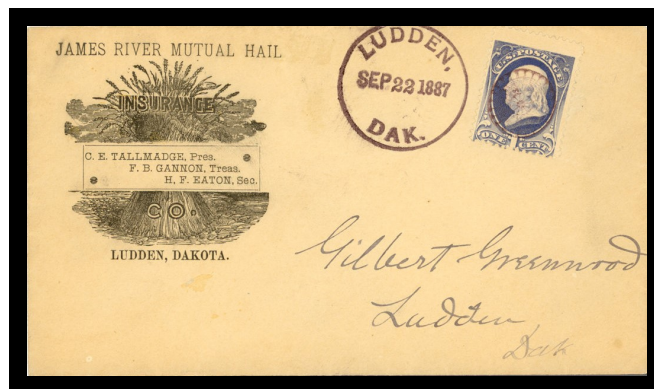 JAMES RIVER MUTUAL HAIL
INSURANCE
C. E. TALLMADGE, Pres.
F. B. GANNON, Treas.
H. F. EATON, Sec.
CO.
LUDDEN, DAKOTA.
LUDDEN,
SEP 22 1887
DAK.
U.S. POSTAGE
ONE CENT
Gilbert Greenwood
Ludden
Dak